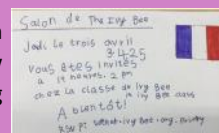 Salon de The Ivy Bee
Jedi le trois avril
3.4.25
Vous êtes invités
a 14 heures. 2 pm
chez la classe de Ivy Bee
in Ivy Bee class
A bientôt!
RSVP: